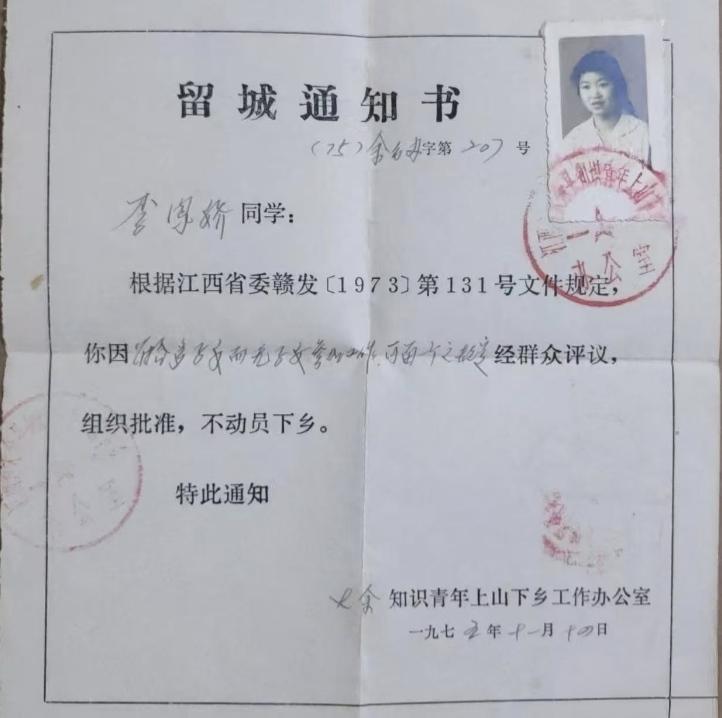 留城通知书
(75)余 字第207号
李 娇同学：
根据江西省委赣发〔1973〕第131号文件规定，
你因 子女而无子女参加工作， 经群众评议，
组织批准，不动员下乡。
特此通知
大余知识青年上山下乡工作办公室
一九七五年十一月十四日
知识青年上山
办公室